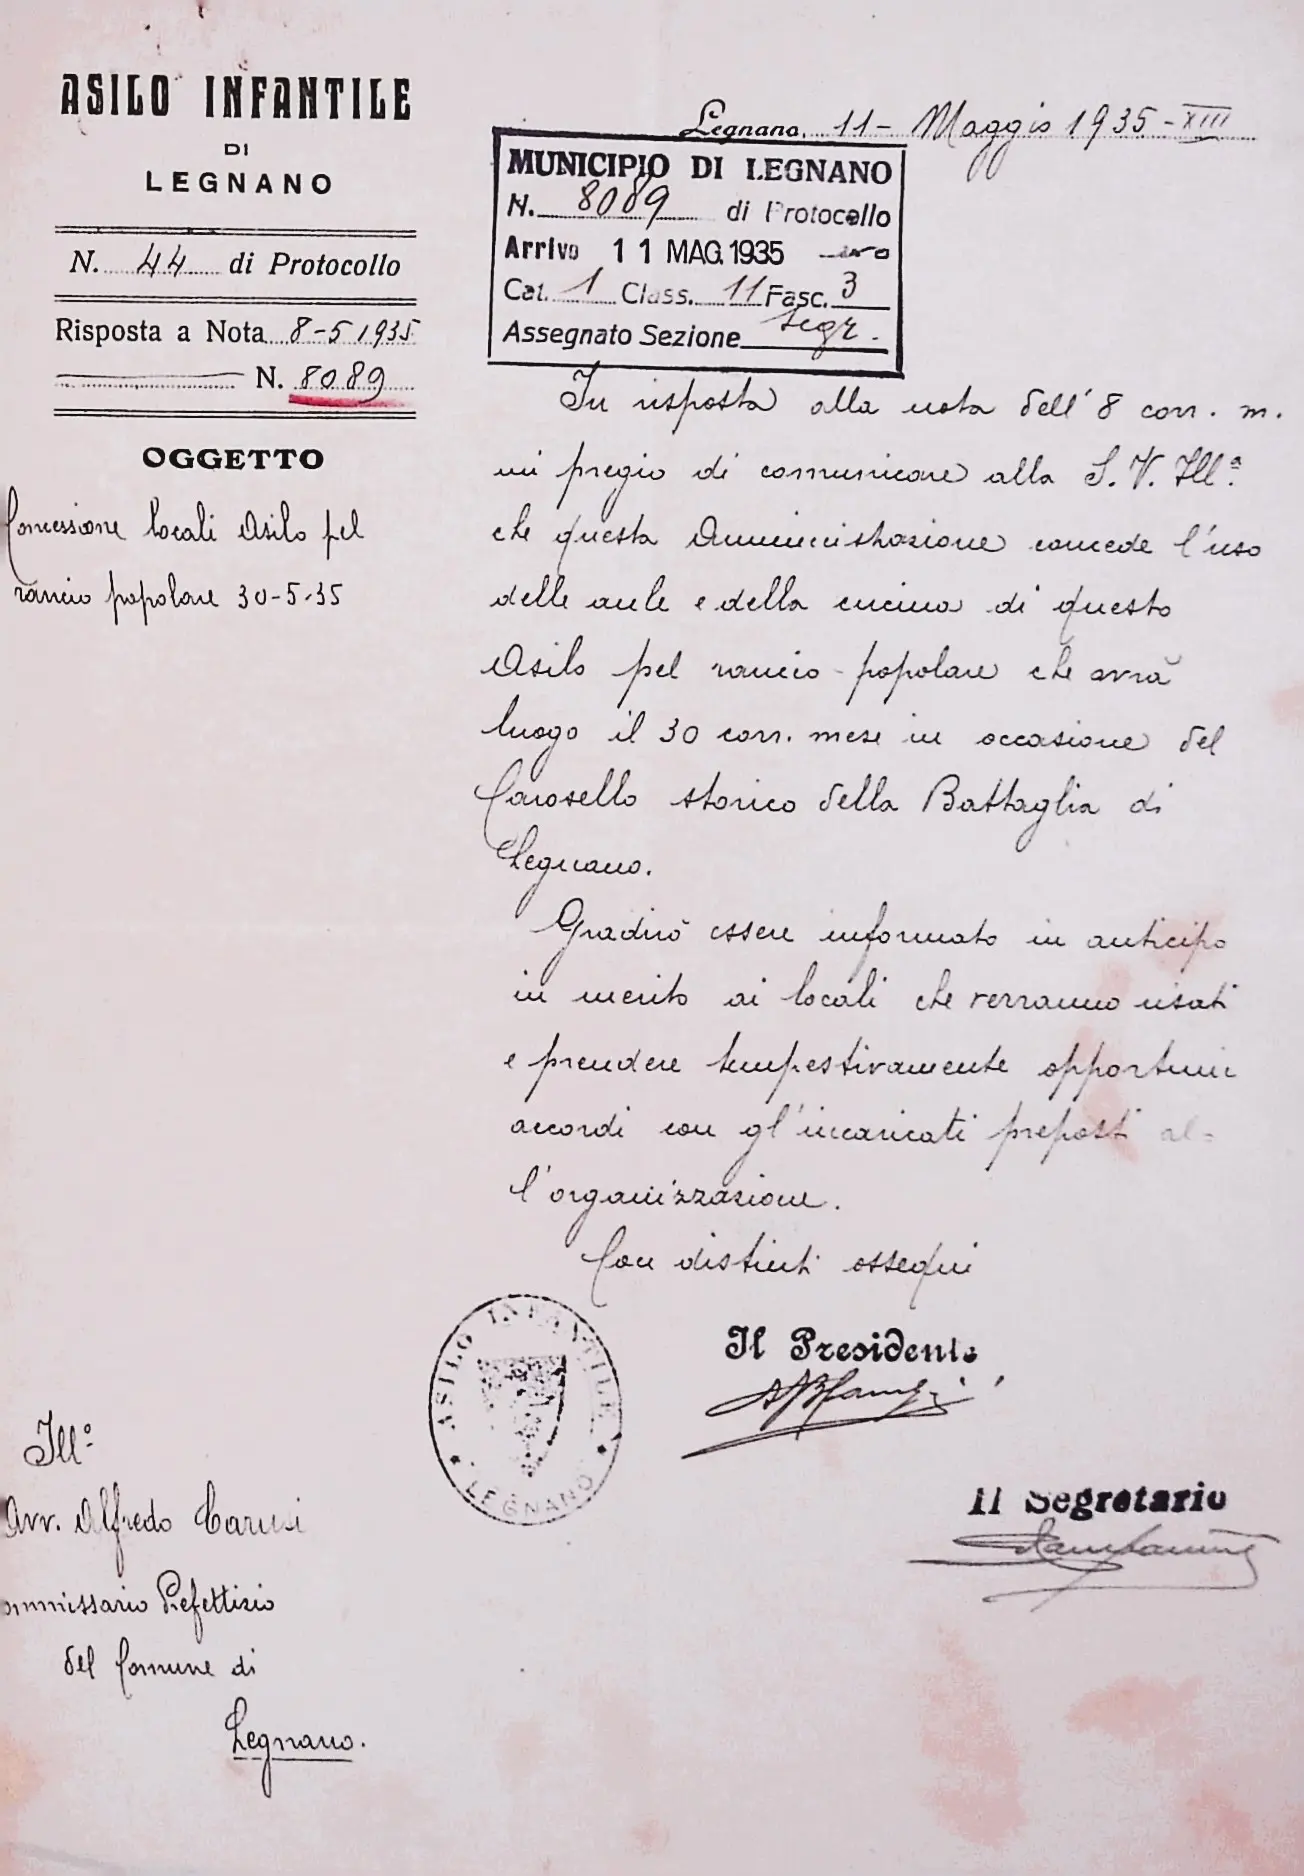 ASILO INFANTILE
DI
LEGNANO
N. 44 di Protocollo
Risposta a Nota 8-5 1935
N. 8089
OGGETTO
Concessione locali Asilo pel
rancio popolare 30-5-35
Legnano, 11 - Maggio 1935 - XIII
MUNICIPIO DI LEGNANO
N. 8089 di Protocollo
Arrivo 11 MAG. 1935
Cat. 1 Class. 11 Fasc. 3
Assegnato Sezione segr.
In risposta alla nota dell' 8 corr. m.
mi pregio di comunicare alla S. V. Ill.ª
che questa Amministrazione concede l'uso
delle aule e della cucina di questo
Asilo pel rancio-popolare che avrà
luogo il 30 corr. mese in occasione del
Carosello storico della Battaglia di
Legnano.
Gradirò essere informato in anticipo
in merito ai locali che verranno usati
e prendere tempestivamente opportuni
accordi con gl'incaricati preposti al=
l'organizzazione.
Con distinti ossequi
ASILO INFANTILE
LEGNANO
Il Presidente
Il Segretario
Ill.º
Avv. Alfredo
ommissario Prefettizio
del Comune di
Legnano.